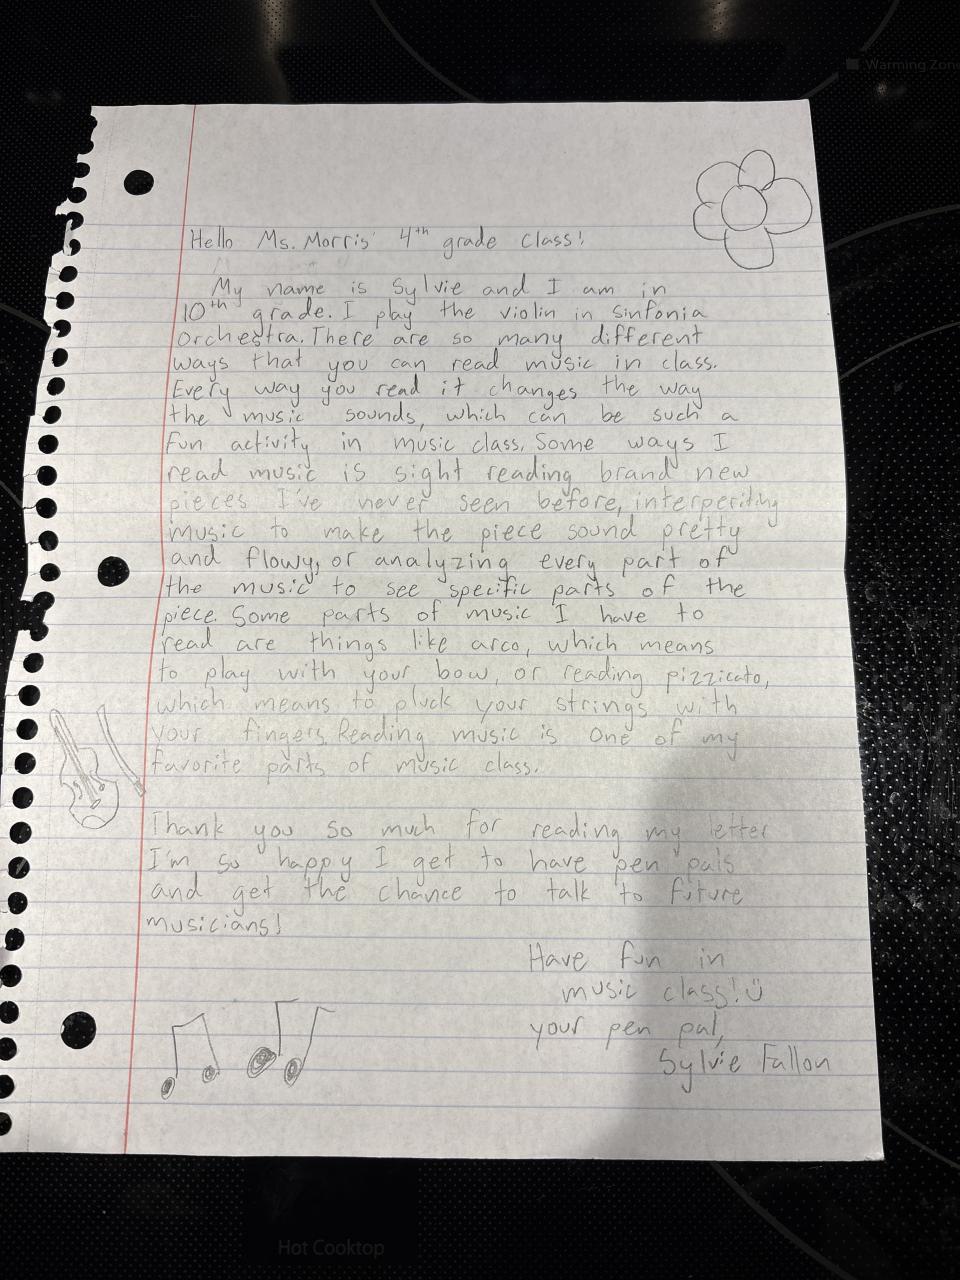 Warming Zone
Hello Ms. Morris' 4th grade class!
My name is Sylvie and I am in
10th grade. I play the violin in sinfonia
orchestra. There are so many different
ways that you can read music in class.
Every way you read it changes the way
the music sounds, which can be such a
fun activity in music class. Some ways I
read music is sight reading brand new
pieces I've never seen before, interperiting
music to make the piece sound pretty
and flowy, or analyzing every part of
the music to see specific parts of the
piece. Some parts of music I have to
read are things like arco, which means
to play with your bow, or reading pizzicato,
which means to pluck your strings with
your fingers. Reading music is one of my
favorite parts of music class.
Thank you so much for reading my letter
I'm so happy I get to have pen pals
and get the chance to talk to future
musicians!
Have fun in
music class! Ü
your pen pal,
Sylvie Fallon
Hot Cooktop